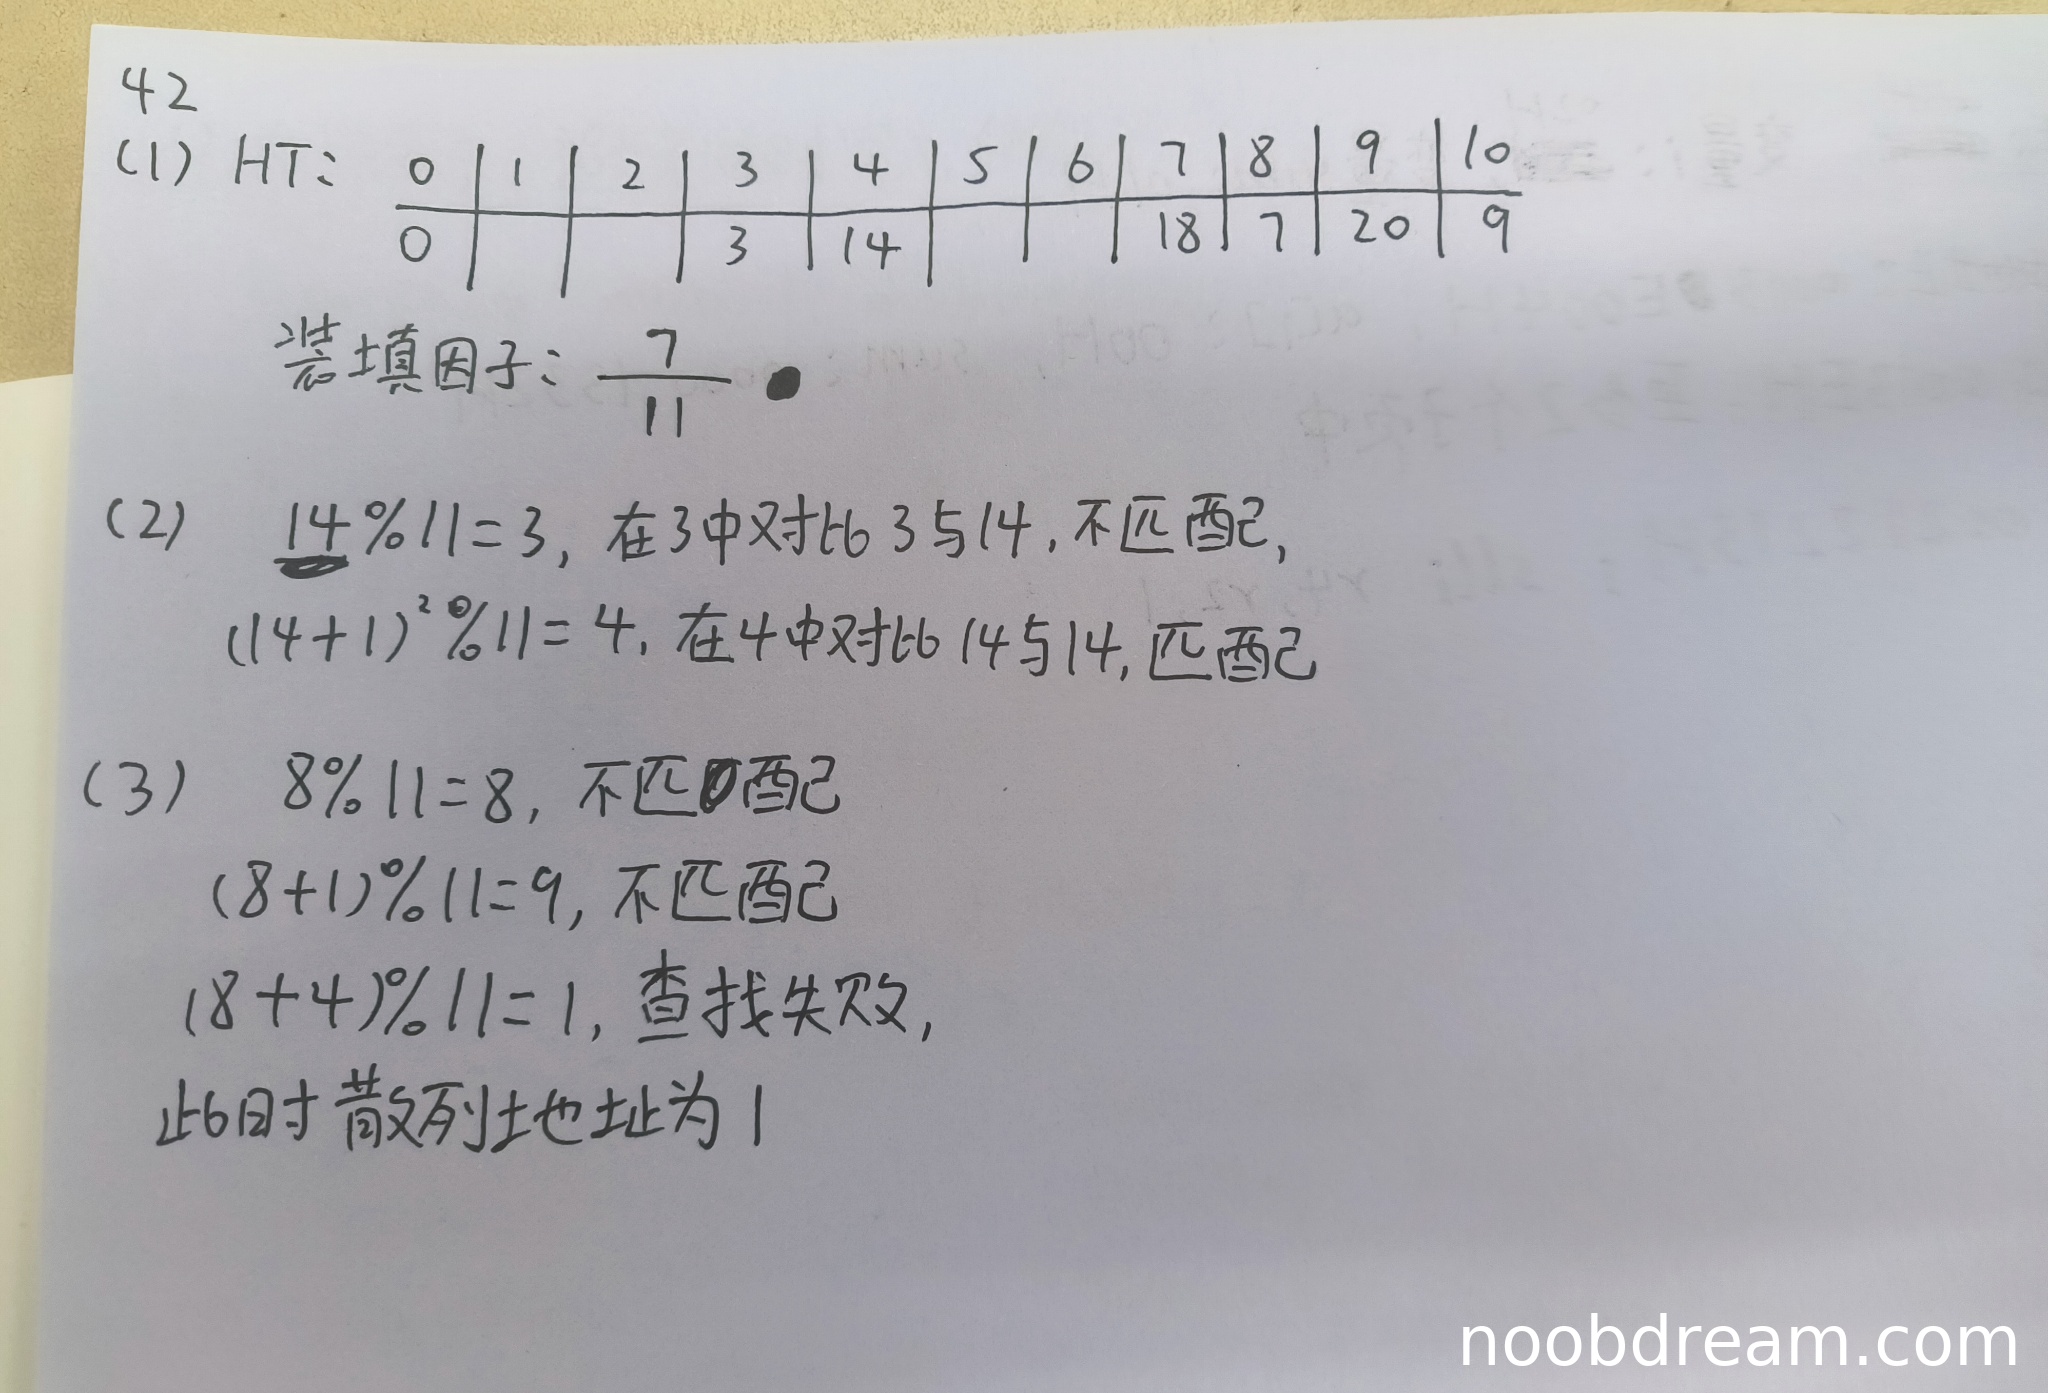 42
(1) HT: 0 1 2 3 4 5 6 7 8 9 10
0 3 14 18 7 20 9
装填因子: 7/11
(2) 14%11=3, 在3中对比3与14, 不匹配,
(14+1)²%11=4, 在4中对比14与14, 匹配
(3) 8%11=8, 不匹配
(8+1)%11=9, 不匹配
(8+4)%11=1, 查找失败,
此时散列地址为1
noobdream.com